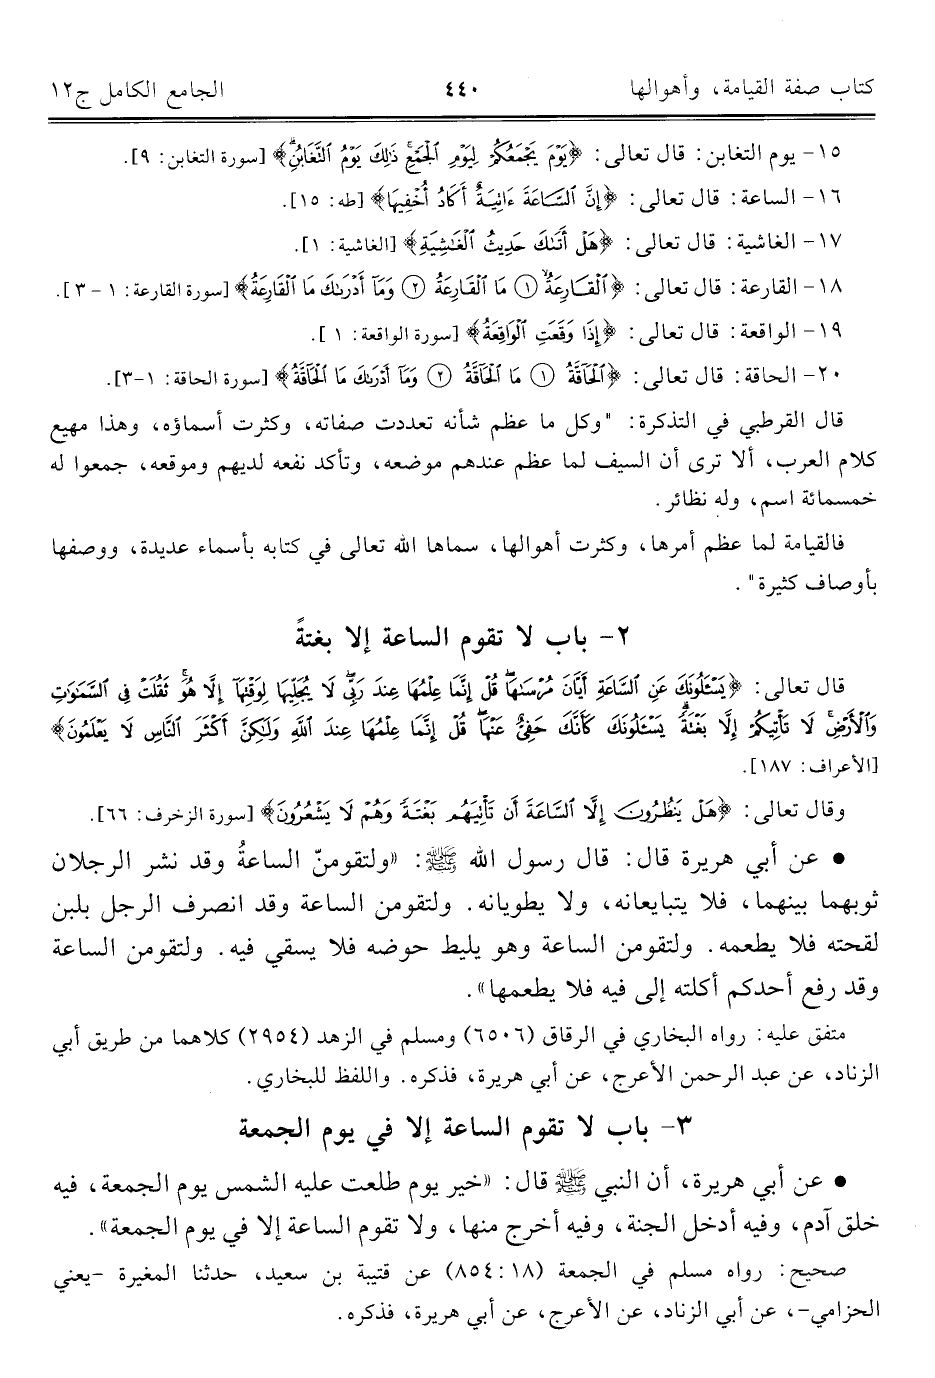 كتاب صفة القيامة، وأهوالها ٤٤٠ الجامع الكامل ج١٢
١٥- يوم التغابن: قال تعالى: ﴿يَوْمَ يَجْمَعُكُمْ لِيَوْمِ ٱلْجَمْعِ ۖ ذَٰلِكَ يَوْمُ ٱلتَّغَابُنِ ۗ﴾ [سورة التغابن: ٩].
١٦- الساعة: قال تعالى: ﴿إِنَّ ٱلسَّاعَةَ ءَاتِيَةٌ أَكَادُ أُخْفِيهَا﴾ [طه: ١٥].
١٧- الغاشية: قال تعالى: ﴿هَلْ أَتَىٰكَ حَدِيثُ ٱلْغَٰشِيَةِ﴾ [الغاشية: ١].
١٨- القارعة: قال تعالى: ﴿ٱلْقَارِعَةُ ۝١ مَا ٱلْقَارِعَةُ ۝٢ وَمَآ أَدْرَىٰكَ مَا ٱلْقَارِعَةُ﴾ [سورة القارعة: ١ - ٣].
١٩- الواقعة: قال تعالى: ﴿إِذَا وَقَعَتِ ٱلْوَاقِعَةُ﴾ [سورة الواقعة: ١ ].
٢٠- الحاقة: قال تعالى: ﴿ٱلْحَآقَّةُ ۝١ مَا ٱلْحَآقَّةُ ۝٢ وَمَآ أَدْرَىٰكَ مَا ٱلْحَآقَّةُ﴾ [سورة الحاقة: ١-٣].
قال القرطبي في التذكرة: "وكل ما عظم شأنه تعددت صفاته، وكثرت أسماؤه، وهذا مهيع
كلام العرب، ألا ترى أن السيف لما عظم عندهم موضعه، وتأكد نفعه لديهم وموقعه، جمعوا له
خمسمائة اسم، وله نظائر.
فالقيامة لما عظم أمرها، وكثرت أهوالها، سماها الله تعالى في كتابه بأسماء عديدة، ووصفها
بأوصاف كثيرة".
٢- باب لا تقوم الساعة إلا بغتةً
قال تعالى: ﴿يَسْـَٔلُونَكَ عَنِ ٱلسَّاعَةِ أَيَّانَ مُرْسَىٰهَا ۖ قُلْ إِنَّمَا عِلْمُهَا عِندَ رَبِّى ۖ لَا يُجَلِّيهَا لِوَقْتِهَآ إِلَّا هُوَ ۚ ثَقُلَتْ فِى ٱلسَّمَٰوَٰتِ
وَٱلْأَرْضِ ۚ لَا تَأْتِيكُمْ إِلَّا بَغْتَةً ۗ يَسْـَٔلُونَكَ كَأَنَّكَ حَفِىٌّ عَنْهَا ۖ قُلْ إِنَّمَا عِلْمُهَا عِندَ ٱللَّهِ وَلَٰكِنَّ أَكْثَرَ ٱلنَّاسِ لَا يَعْلَمُونَ﴾
[الأعراف: ١٨٧].
وقال تعالى: ﴿هَلْ يَنظُرُونَ إِلَّا ٱلسَّاعَةَ أَن تَأْتِيَهُم بَغْتَةً وَهُمْ لَا يَشْعُرُونَ﴾ [سورة الزخرف: ٦٦].
• عن أبي هريرة قال: قال رسول الله ﷺ: «ولتقومنّ الساعةُ وقد نشر الرجلان
ثوبهما بينهما، فلا يتبايعانه، ولا يطويانه. ولتقومن الساعة وقد انصرف الرجل بلبن
لقحته فلا يطعمه. ولتقومن الساعة وهو يليط حوضه فلا يسقي فيه. ولتقومن الساعة
وقد رفع أحدكم أكلته إلى فيه فلا يطعمها».
متفق عليه: رواه البخاري في الرقاق (٦٥٠٦) ومسلم في الزهد (٢٩٥٤) كلاهما من طريق أبي
الزناد، عن عبد الرحمن الأعرج، عن أبي هريرة، فذكره. واللفظ للبخاري.
٣- باب لا تقوم الساعة إلا في يوم الجمعة
• عن أبي هريرة، أن النبي ﷺ قال: «خير يوم طلعت عليه الشمس يوم الجمعة، فيه
خلق آدم، وفيه أدخل الجنة، وفيه أخرج منها، ولا تقوم الساعة إلا في يوم الجمعة».
صحيح: رواه مسلم في الجمعة (٨٥٤:١٨) عن قتيبة بن سعيد، حدثنا المغيرة -يعني
الحزامي-، عن أبي الزناد، عن الأعرج، عن أبي هريرة، فذكره.